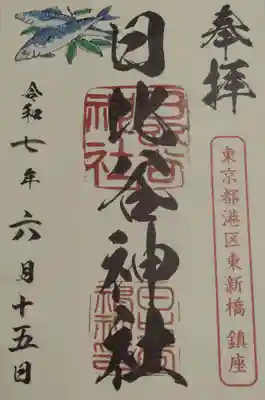 奉拝
東京都港区東新橋 鎮座
日比谷神社
令和七年六月十五日